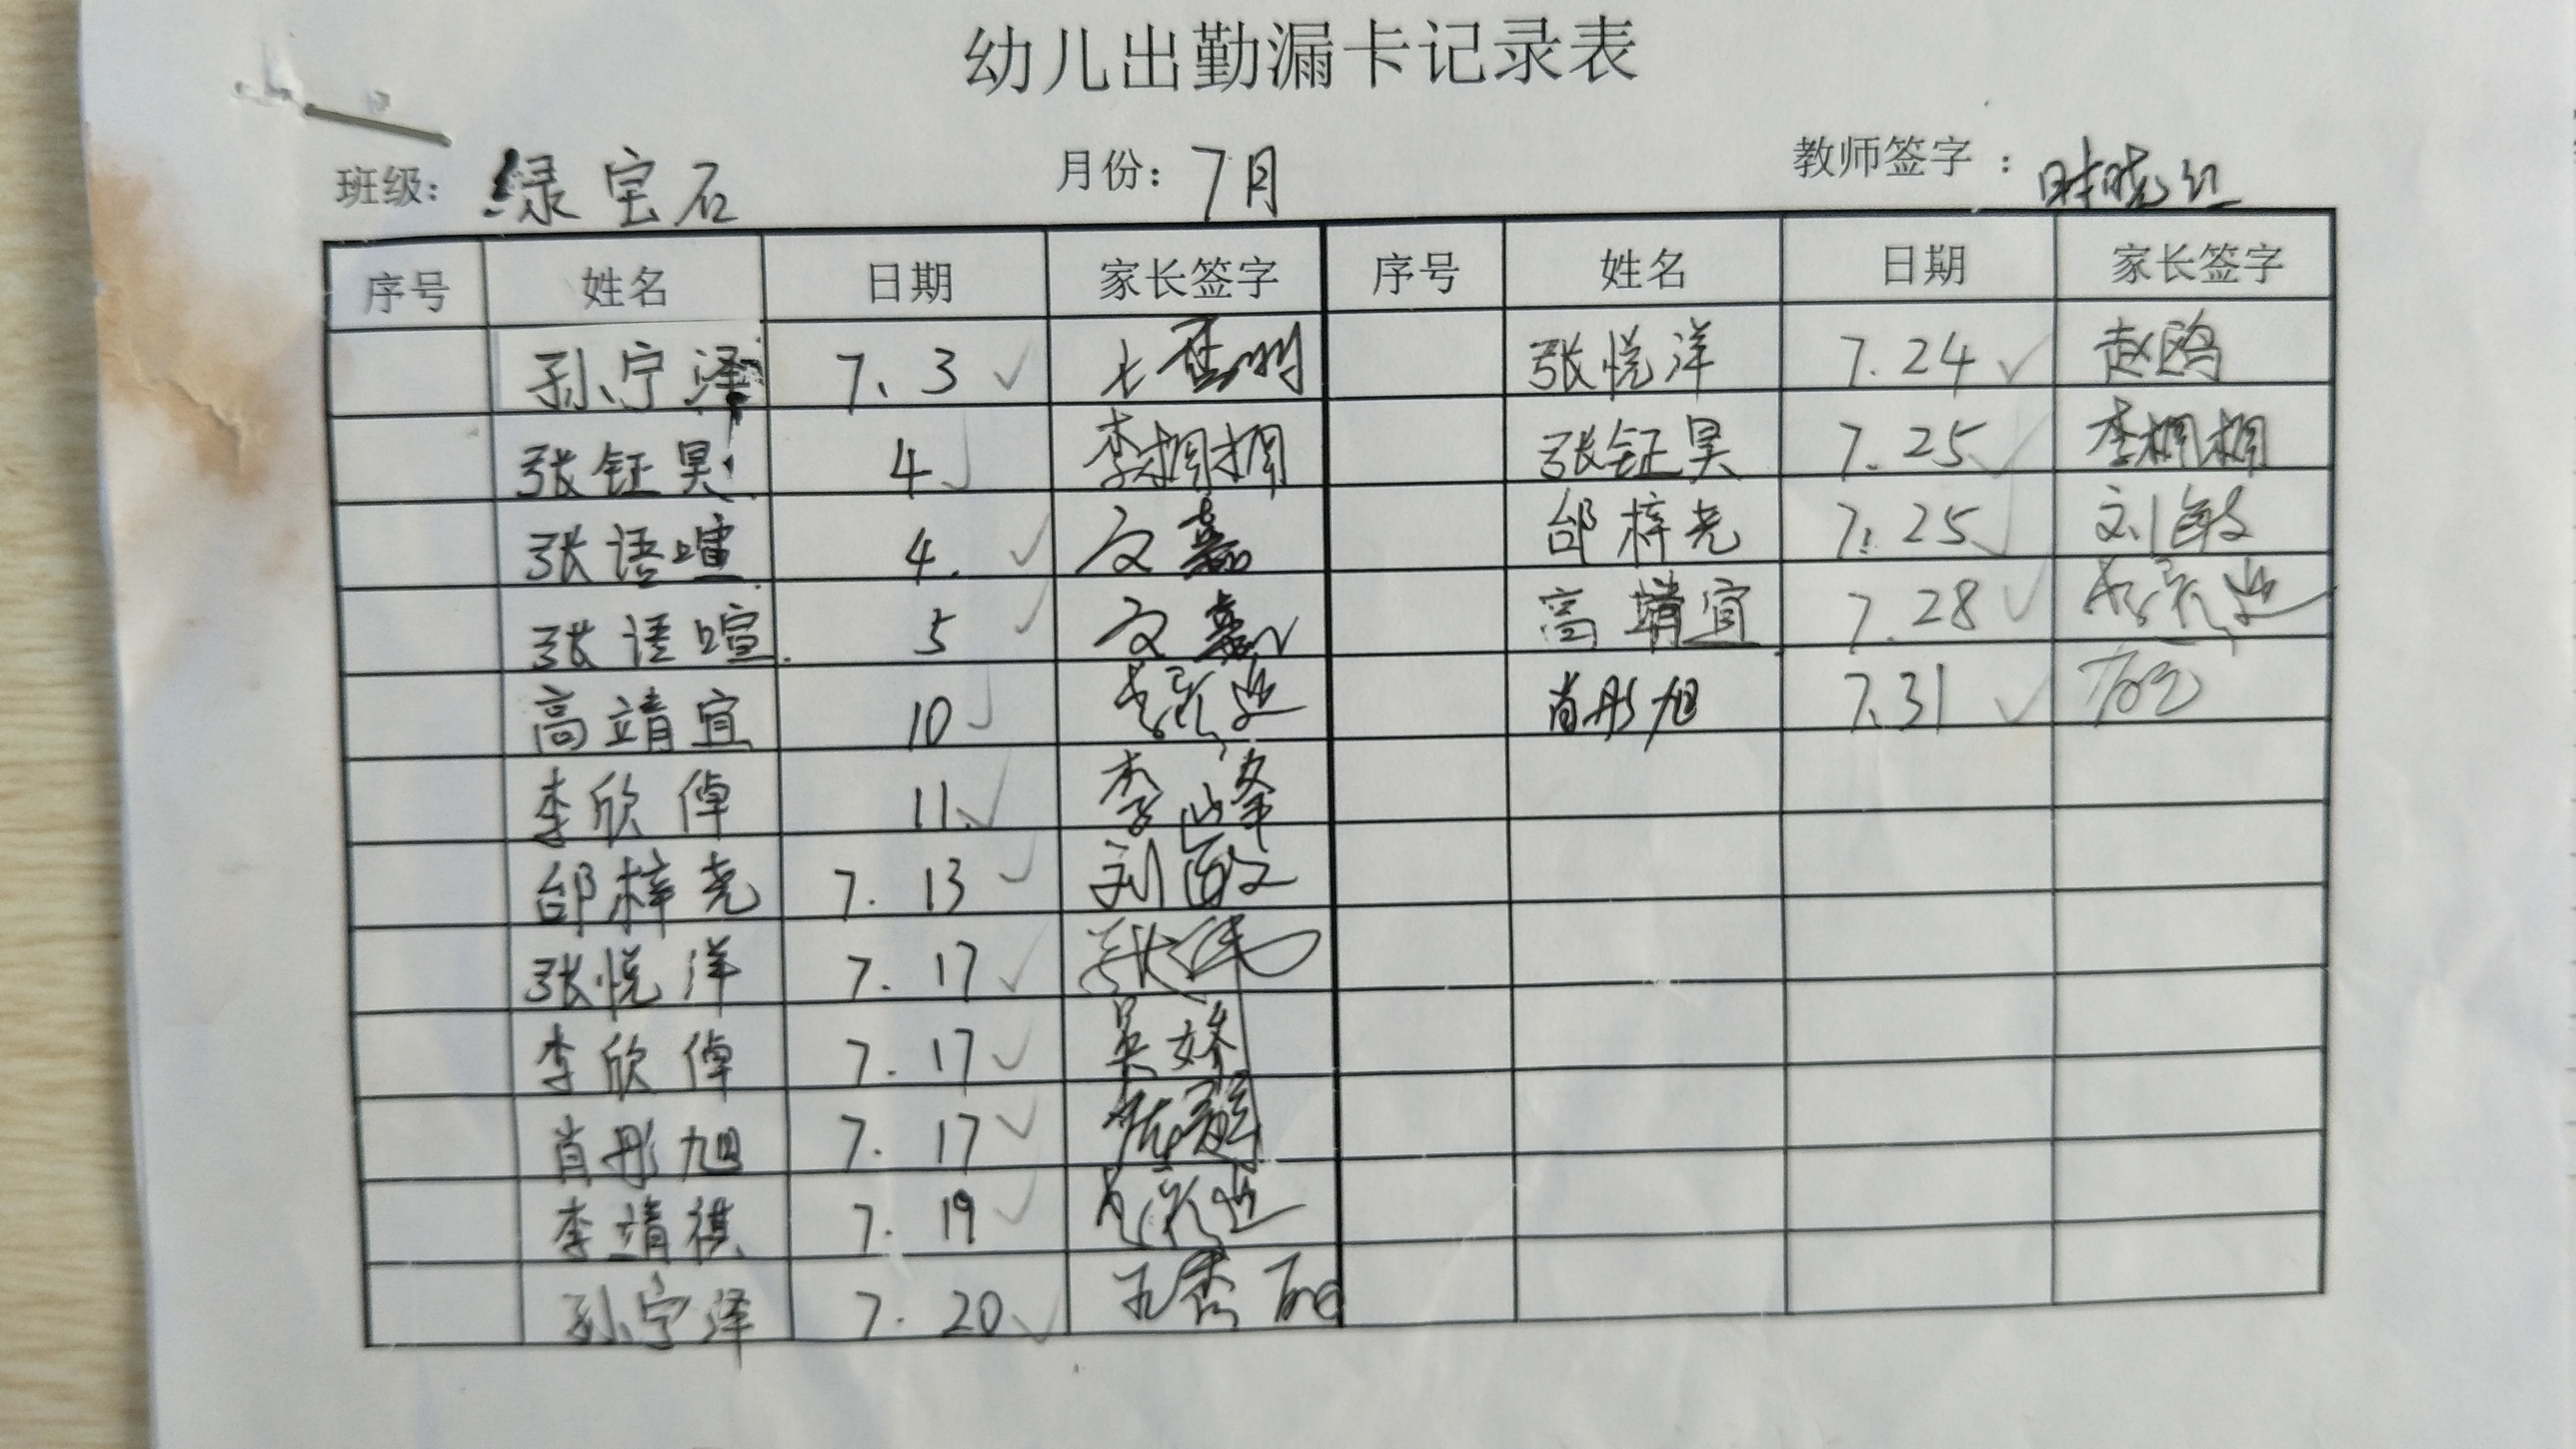 幼儿出勤漏卡记录表
班级: 绿宝石 月份: 7月 教师签字: 时晓红
序号 姓名 日期 家长签字 序号 姓名 日期 家长签字
孙宁泽 7.3 ✓ 张悦洋 7.24 ✓ 赵鸥
张钰昊 4 ✓ 李栩栩 张钰昊 7.25 ✓ 李栩栩
张语喧 4. ✓ 文嘉 邰梓尧 7.25 ✓ 刘敏
张语喧 5 ✓ 文嘉 高靖宜 7.28 ✓
高靖宜 10 ✓ 肖彤旭 7.31 ✓
李欣倬 11. ✓ 李峰
邰梓尧 7.13 ✓ 刘敏
张悦洋 7.17 ✓ 张
李欣倬 7.17 ✓ 吴娇
肖彤旭 7.17 ✓
李靖祺 7.19 ✓
孙宁泽 7.20 ✓